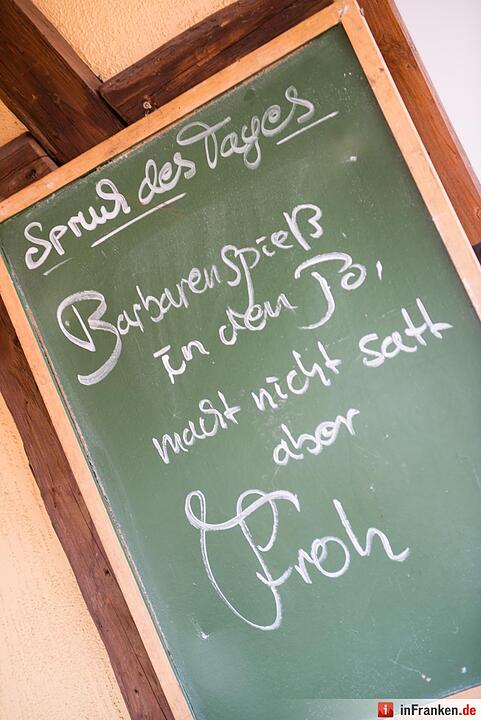 Spruch des Tages
Barbarenspieß
in den Po,
macht nicht satt
aber
Froh
inFranken.de